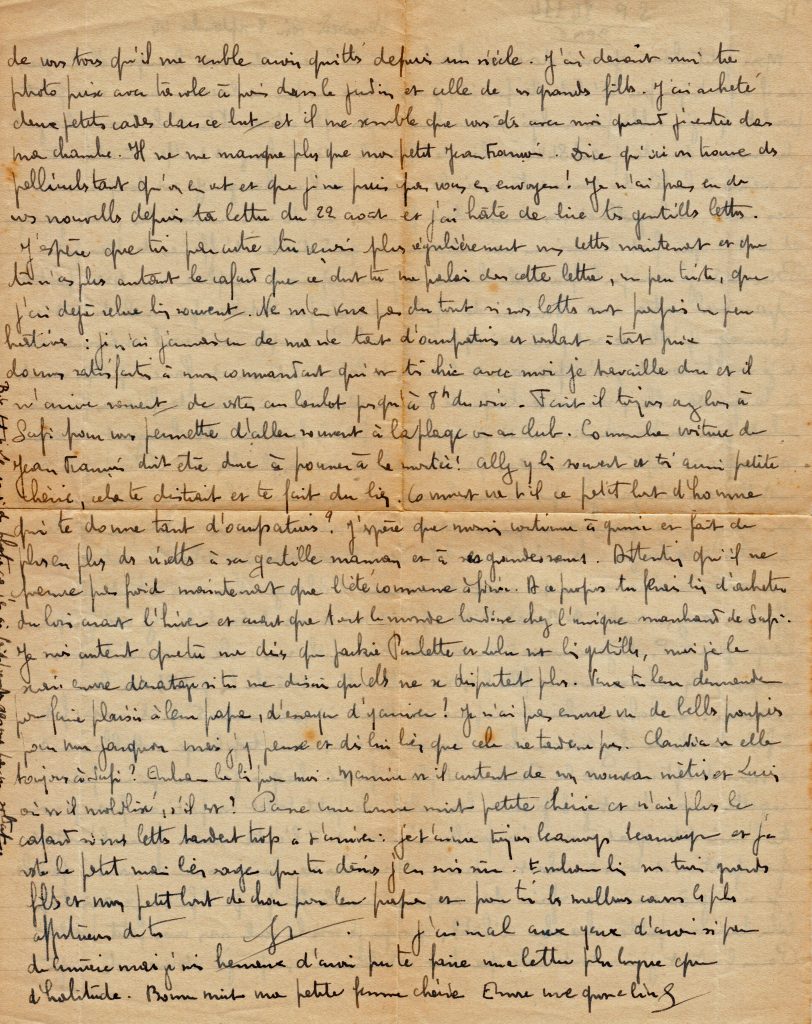 de vous tous qu'il me semble avoir quittés depuis un siècle. J'ai devant moi ta
photo prise avec ta robe à pois dans le jardin et celle de nos grandes filles. J'ai acheté
deux petits cadres dans ce but et il me semble que vous êtes avec moi quand j'entre dans
ma chambre. Il ne me manque plus que mon petit Jean François. Dire qu'ici on trouve des
pellicules tant qu'on en veut et que je ne puis pas vous en envoyer! Je n'ai pas eu de
vos nouvelles depuis ta lettre du 22 août et j'ai hâte de lire tes gentilles lettres.
J'espère que toi par contre tu reçois plus régulièrement mes lettres maintenant et que
tu n'as plus autant le cafard que ce dont tu me parlais dans cette lettre, un peu triste, que
j'ai déjà relue bien souvent. Ne m'en veux pas du tout si mes lettres sont parfois un peu
hâtives : je n'ai jamais eu de ma vie tant d'occupations et voulant à tout prix
donner satisfaction à mon commandant qui est très chic avec moi je travaille dur et il
m'arrive souvent de rester au boulot jusqu'à 8h du soir. Fait il toujours assez bon à
Safi pour vous permettre d'aller souvent à la plage ou au club. Comme la voiture de
Jean François doit être dure à pousser à la montée! Allez y bien souvent et toi aussi petite
chérie, cela te distrait et te fait du bien. Comment va t'il ce petit bout d'homme
qui te donne tant d'occupations? J'espère que mimi continue à grossir et fait de
plus en plus de risettes à sa gentille maman et à ses grandes sœurs. Attention qu'il ne
prenne pas froid maintenant que l'été commence à finir. A ce propos tu ferais bien d'acheter
du bois avant l'hiver et avant que tout le monde se chez l'unique marchand de Safi.
Je suis content que tu me dises que Jackie Paulette et Lulu sont bien gentilles, mais je le
serais encore davantage si tu me disais qu'elles ne se disputent plus. Veux tu leur demander
pour faire plaisir à leur papa, d'essayer d'y arriver? Je n'ai pas encore vu de belles poupées
pour mais j'y pense et dis lui bien que cela ne tardera pas. Claudia est elle
toujours à Safi? Embrasse la bien pour moi. Maurice est il content de son nouveau métier et
où est il mobilisé, s'il l'est? Passe une bonne nuit petite chérie et n'aie plus le
cafard si mes lettres tardent trop à t'arriver : je t'aime toujours beaucoup beaucoup et je
reste le petit mari bien sage que tu désires j'en suis sûr. Embrasse bien nos trois grandes
filles et mon petit bout de chou pour leur papa et pour toi les meilleurs baisers les plus
affectueux de ton
J'ai mal aux yeux d'avoir si peu
de lumière mais je suis heureux d'avoir pu te faire une lettre plus longue que
d'habitude. Bonne nuit ma petite femme chérie Encore une grosse bise